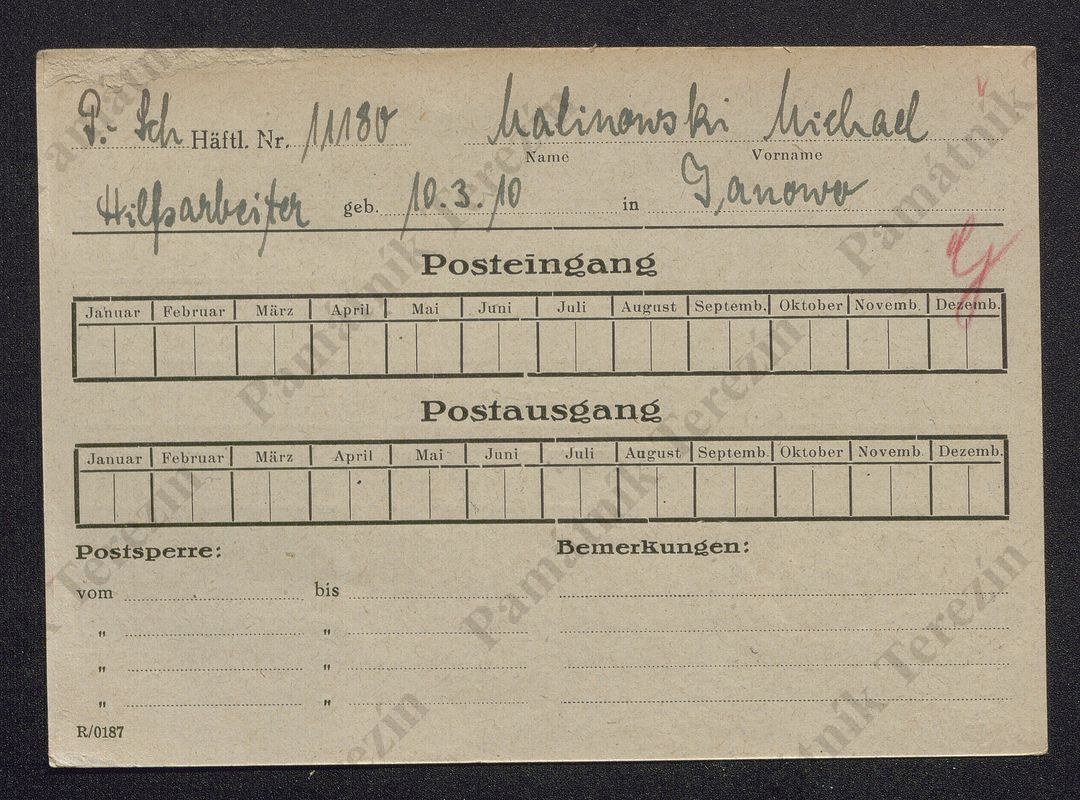 P.- Sch Häftl. Nr. 11180 Malinowski Michael
Name Vorname
Hilfsarbeiter geb. 10.3.10 in Janowo
Posteingang
Januar Februar März April Mai Juni Juli August Septemb. Oktober Novemb. Dezemb.
Postausgang
Januar Februar März April Mai Juni Juli August Septemb. Oktober Novemb. Dezemb.
Postsperre: Bemerkungen:
vom bis
" "
" "
" "
R/0187
Památník Terezín